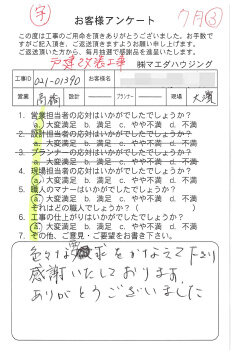 字
7月③
お客様アンケート
この度は工事のご用命を頂きありがとうございました。お手数で
すがご記入頂き、ご返送頂きますようお願い申し上げます。
ご返送頂いた方から、毎月抽選で感謝品を進呈いたします。
戸建改装工事 ㈱マエダハウジング
工事ID 021-01390 お客様名
営業 高橋 設計 プランナー 現場 大濱
1. 営業担当者の応対はいかがでしたでしょうか?
a. 大変満足 b. 満足 c. やや不満 d. 不満
2. 設計担当者の応対はいかがでしたでしょうか?
a. 大変満足 b. 満足 c. やや不満 d. 不満
3. プランナーの応対はいかがでしたでしょうか?
a. 大変満足 b. 満足 c. やや不満 d. 不満
4. 現場担当者の応対はいかがでしたでしょうか?
a. 大変満足 b. 満足 c. やや不満 d. 不満
5. 職人のマナーはいかがでしたでしょうか?
a. 大変満足 b. 満足 c. やや不満 d. 不満
それはどの職人でしょうか?( )
6. 工事の仕上がりはいかがでしたでしょうか?
a. 大変満足 b. 満足 c. やや不満 d. 不満
7. その他、ご意見・ご要望をお書き下さい。
色々な要求をかなえて下さり
感謝いたしております。
ありがとうございました